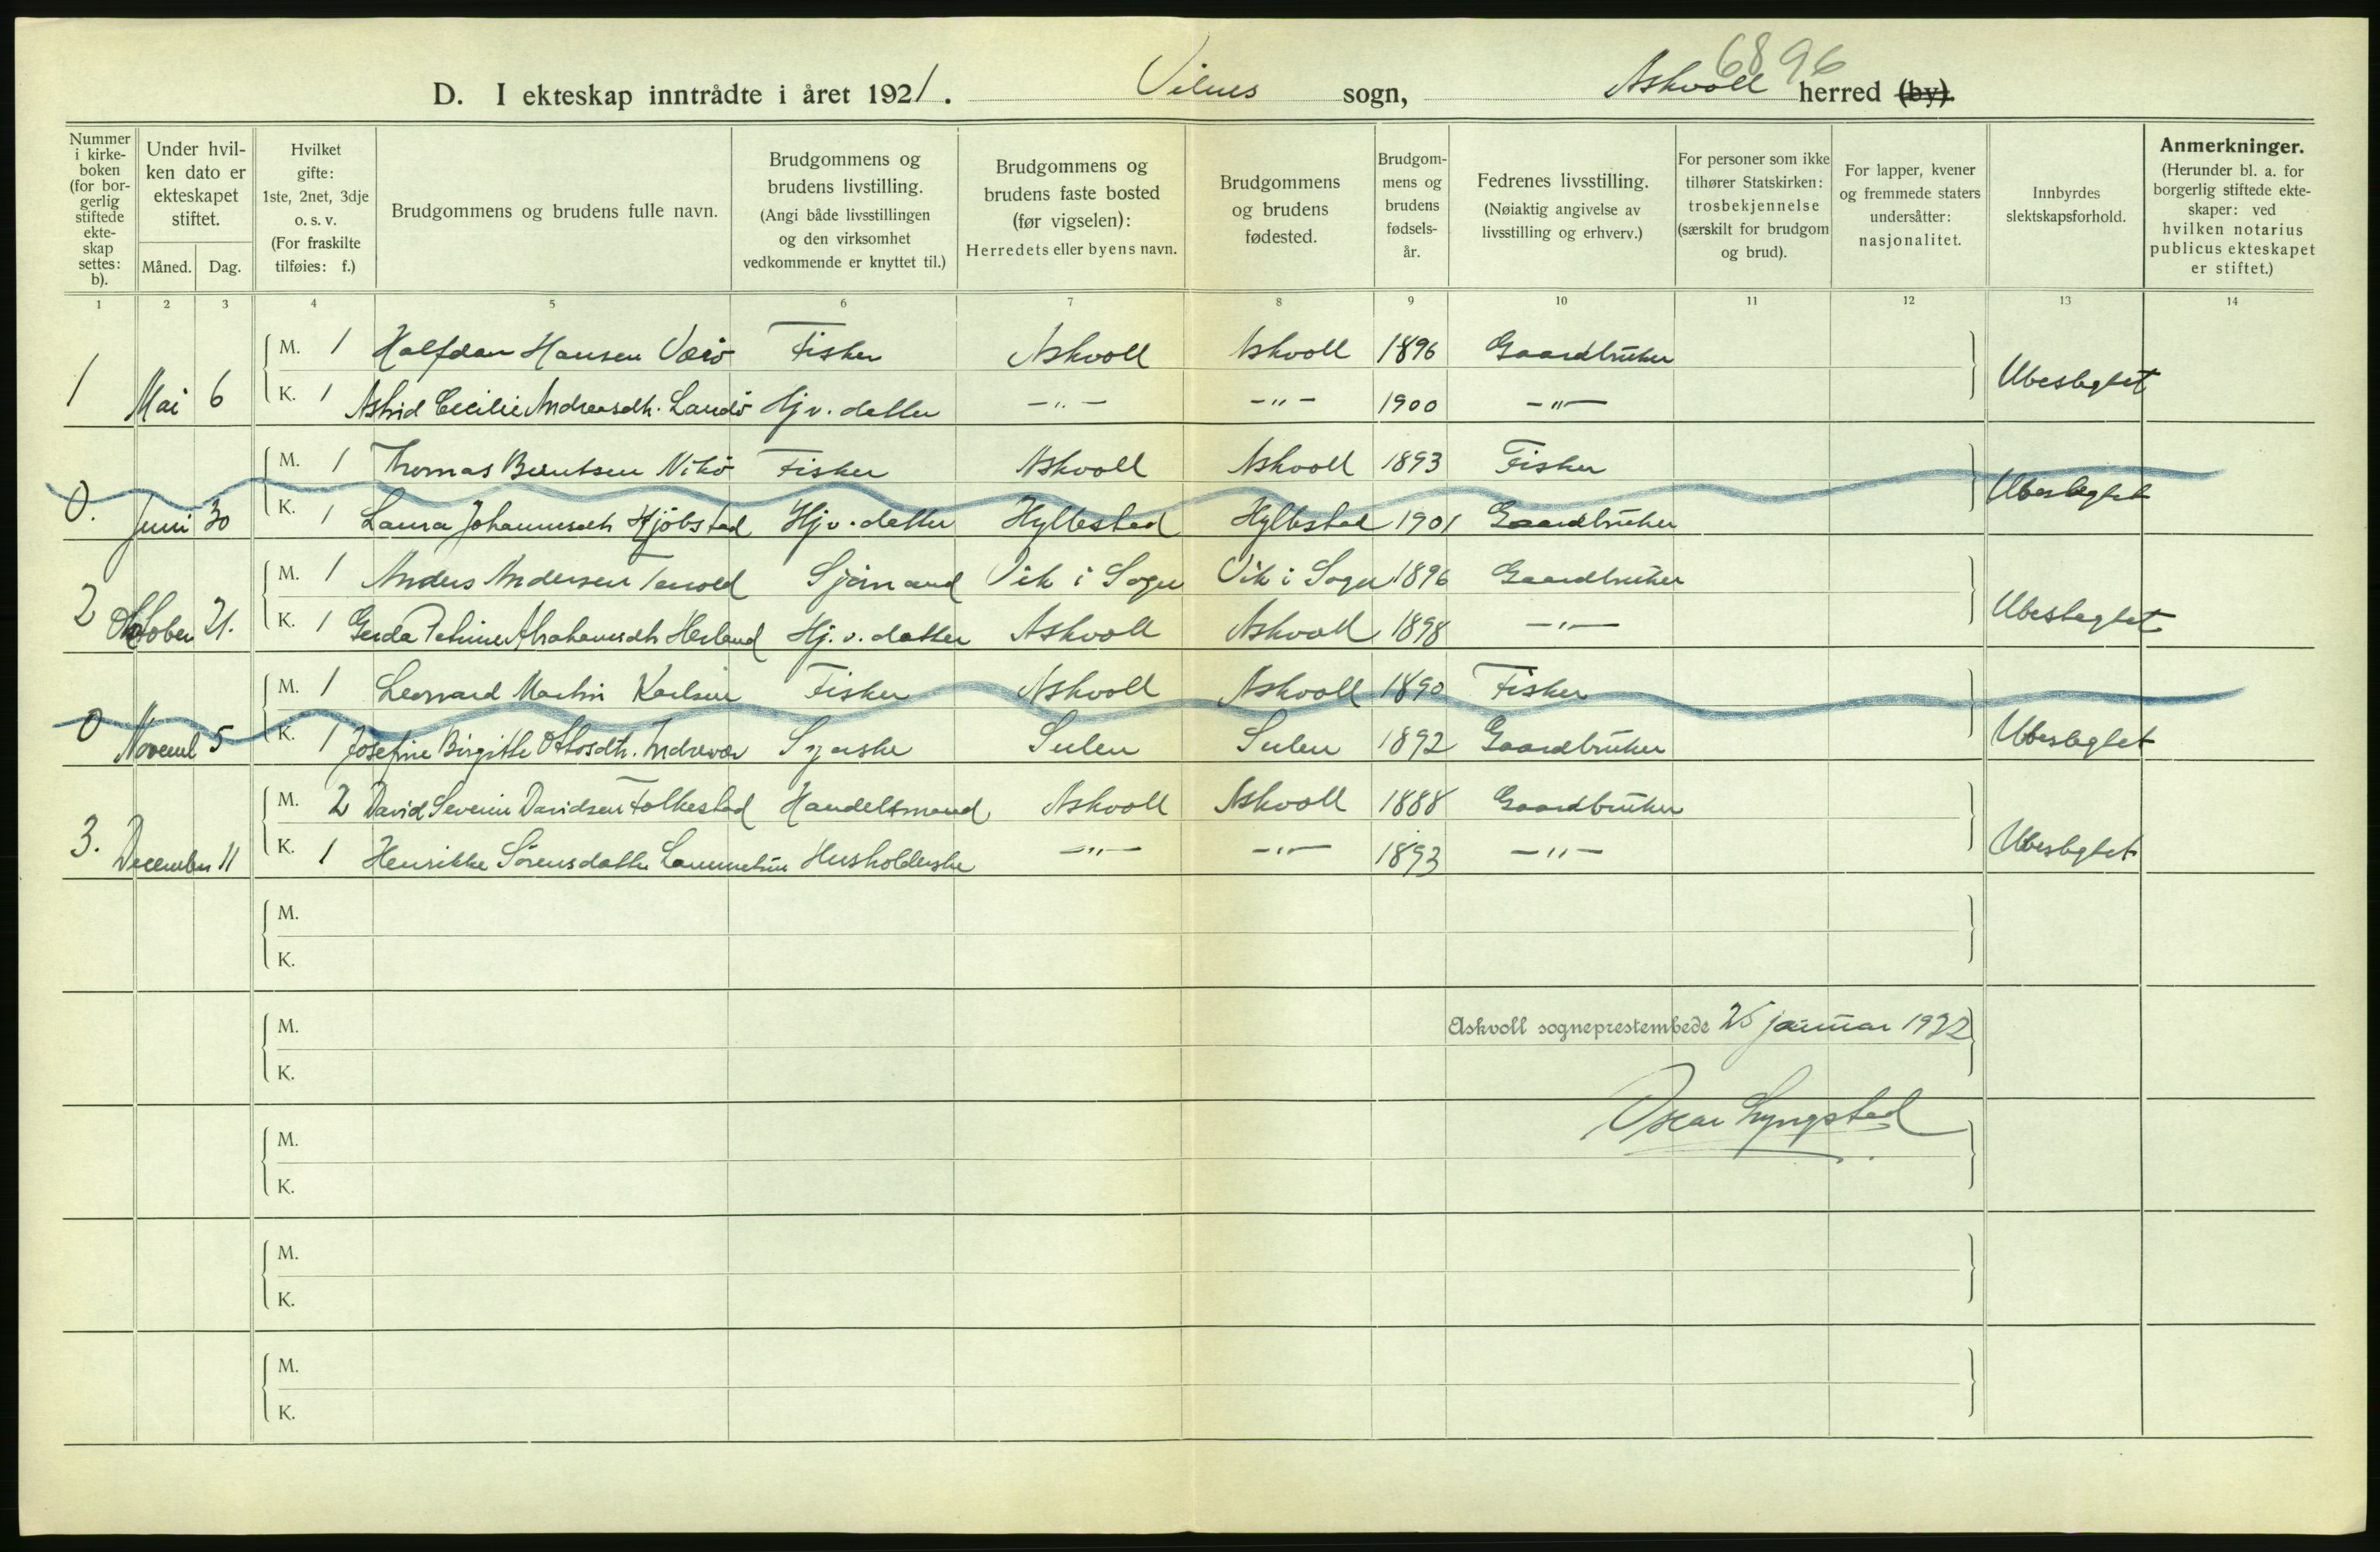 6896
D. I ekteskap inntrådte i året 1921. Vilnes sogn, Askvoll herred (by).
Nummer i kirke-boken (for bor-gerlig stiftede ekte-skap settes: b).
Under hvil-ken dato er ekteskapet stiftet.
Måned. Dag.
Hvilket gifte: 1ste, 2net, 3dje o. s. v. (For fraskilte tilføies: f.)
Brudgommens og brudens fulle navn.
Brudgommens og brudens livstilling. (Angi både livsstillingen og den virksomhet vedkommende er knyttet til.)
Brudgommens og brudens faste bosted (før vigselen): Herredets eller byens navn.
Brudgommens og brudens fødested.
Brudgom-mens og brudens fødsels-år.
Fedrenes livsstilling. (Nøiaktig angivelse av livsstilling og erhverv.)
For personer som ikke tilhører Statskirken: trosbekjennelse (særskilt for brudgom og brud).
For lapper, kvener og fremmede staters undersåtter: nasjonalitet.
Innbyrdes slektskapsforhold.
Anmerkninger. (Herunder bl. a. for borgerlig stiftede ekte-skaper: ved hvilken notarius publicus ekteskapet er stiftet.)
1 2 3 4 5 6 7 8 9 10 11 12 13 14
M. 1 Halfdan Hansen Værö Fisker Askvoll Askvoll 1896 Gaardbruker
1 Mai 6 K. 1 Astrid Cecilie Andreasdtr. Landö Hjv. datter —"— —"— 1900 —"— Ubeslegtet
M. 1 Thomas Berntsen Nikö Fisker Askvoll Askvoll 1893 Fisker
0. Juni 30 K. 1 Laura Johannesdtr Hjöbstad Hjv. datter Hyllestad Hyllestad 1901 Gaardbruker Ubeslegtet
M. 1 Anders Andersen Sjömand Vik i Sogn Vik i Sogn 1896 Gaardbruker
2 Oktober 21. K. 1 Gerda Petrine Abrahamsdtr Herland Hj. v. datter Askvoll Askvoll 1898 —"— Ubeslegtet
M. 1 Leonard Martin Karlsen Fisker Askvoll Askvoll 1890 Fisker
0 Novemb 5 K. 1 Josefine Birgitte Ottosdtr. Indrevær Syerske Sulen Sulen 1892 Gaardbruker Ubeslegtet
M. 2 David Severin Davidsen Folkestad Handelsmand Askvoll Askvoll 1888 Gaardbruker
3. December 11 K. 1 Henrikke Sörensdatter Husholderske —"— —"— 1893 —"— Ubeslegtet
M.
K.
M. Askvoll sogneprestembede 25 januar 1922
K.
Oscar Lyngstad
M.
K.
M.
K.
M.
K.